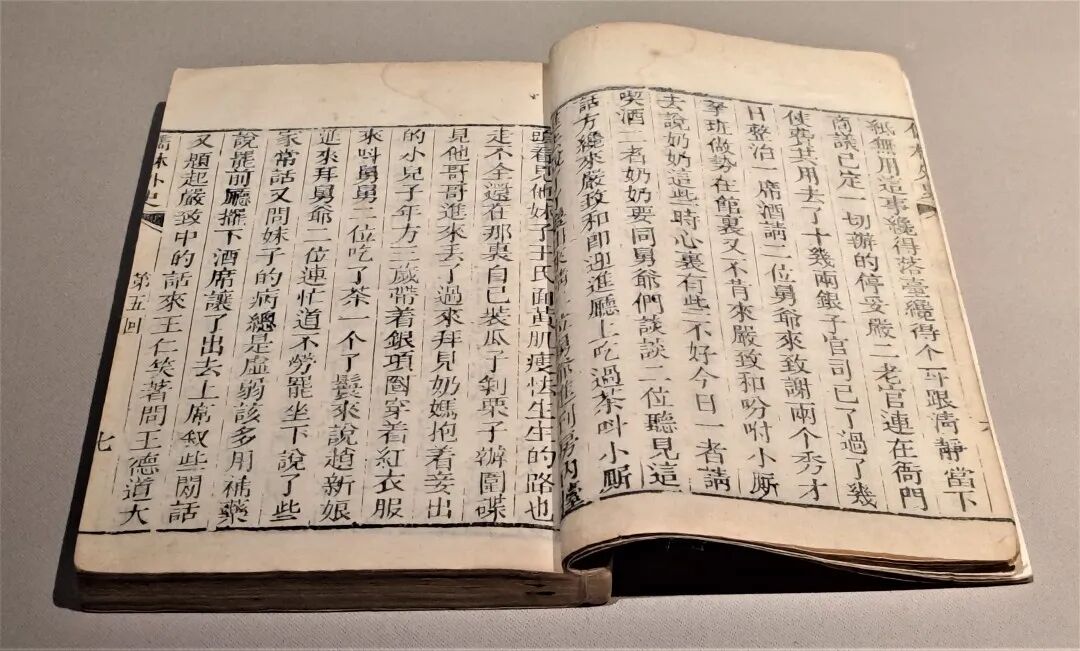 儒林外史
紙無用這事纔得落臺纔得个耳跟清靜當下
商議已定一切辦的停妥嚴二老官連在衙門
使費共用去了十幾兩銀子官司已了過了幾
日整治一席酒請二位舅爺來致謝兩个秀才
拏班做勢在館裏又不肯來嚴致和吩咐小厮
去說奶奶這些時心裏有些不好今日一者請
喫酒二者奶奶要同舅爺們談談二位聽見這
話方纔來嚴致和即迎進廳上吃過茶叫小厮
說了位舅爺進到房內擡
頭看見他妹子王氏面黃肌瘦怯生生的路也
走不全還在那裏自己裝瓜子剝栗子辦圍碟
見他哥哥進來丟了過來拜見奶媽抱着妾出
的小兒子年方三歲帶着銀項圈穿着紅衣服
來呌舅舅二位吃了茶一个丫鬟來說趙新娘
進來拜舅爺二位連忙道不勞罷坐下說了些
家常話又問妹子的病總是虛弱該多用補藥
說罷前廳擺下酒席讓了出去上席叙些閒話
又題起嚴致中的話來王仁笑著問王德道大
儒林外史 第五回 七